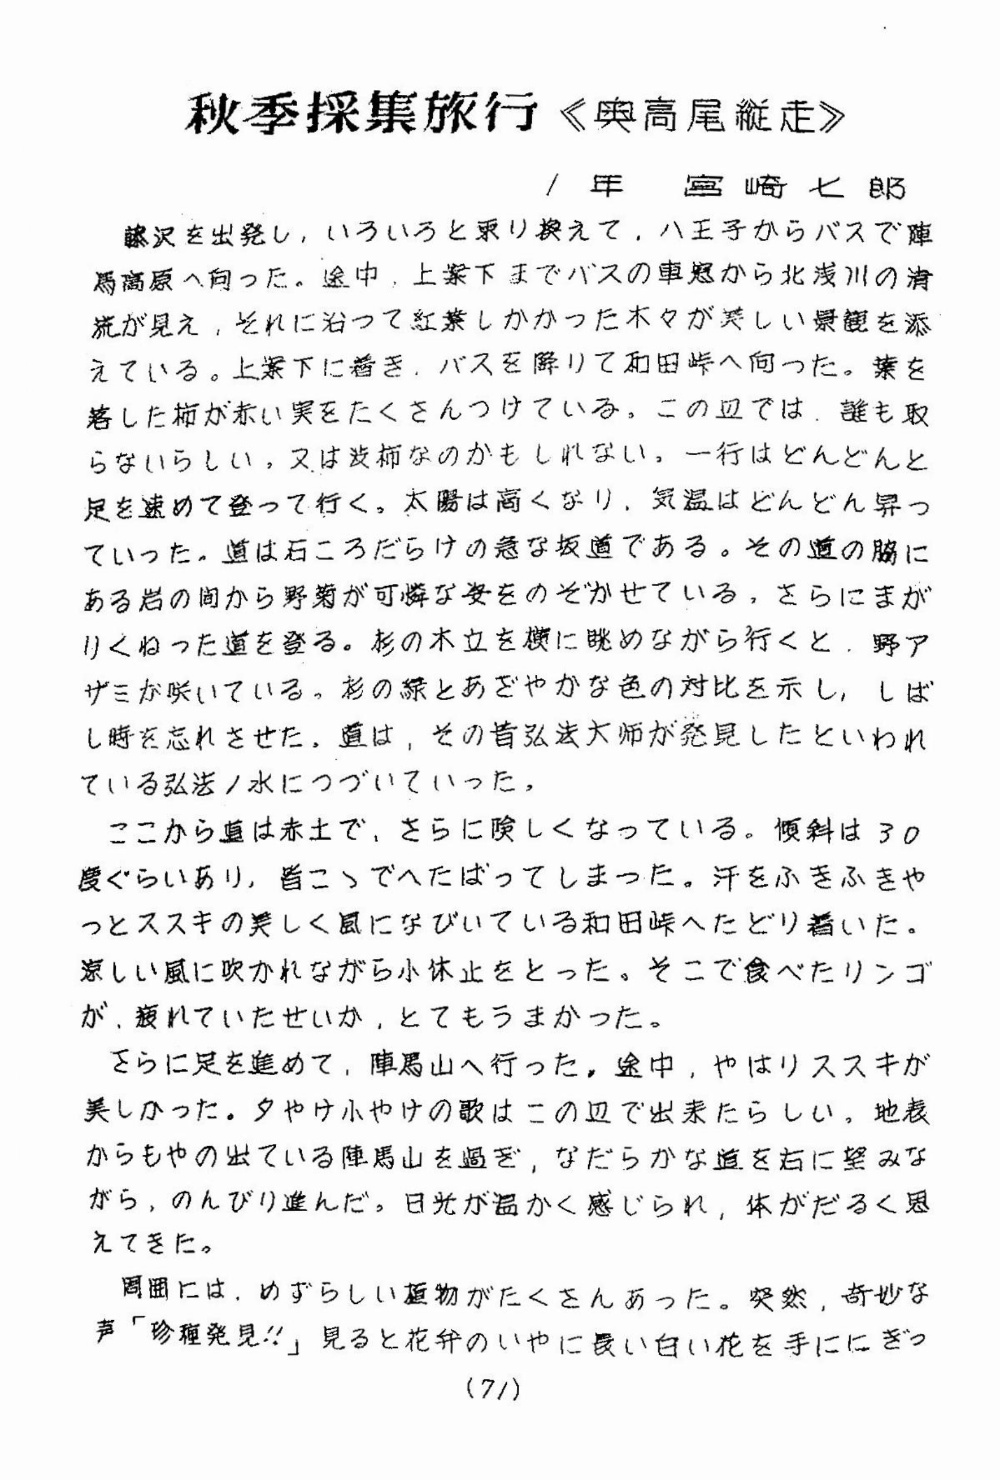 秋季採集旅行《奥高尾縦走》
1年　宮崎七郎
藤沢を出発し，いろいろと乗り換えて，八王子からバスで陣
馬高原へ向った。途中，上案下までバスの車窓から北浅川の清
流が見え，それに沿って紅葉しかかった木々が美しい景観を添
えている。上案下に着き，バスを降りて和田峠へ向った。葉を
落した柿が赤い実をたくさんつけている。この辺では，誰も取
らないらしい，又は渋柿なのかもしれない。一行はどんどんと
足を速めて登って行く。太陽は高くなり，気温はどんどん昇っ
ていった。道は石ころだらけの急な坂道である。その道の脇に
ある岩の間から野菊が可憐な姿をのぞかせている，さらにまが
りくねった道を登る。杉の木立を横に眺めながら行くと，野ア
ザミが咲いている。杉の緑とあざやかな色の対比を示し，しば
し時を忘れさせた。道は，その昔弘法大師が発見したといわれ
ている弘法ノ水につづいていった，
ここから道は赤土で，さらに険しくなっている。傾斜は30
度ぐらいあり，皆こゝでへたばってしまった。汗をふきふきや
っとススキの美しく風になびいている和田峠へたどり着いた。
涼しい風に吹かれながら小休止をとった。そこで食べたリンゴ
が，疲れていたせいか，とてもうまかった。
さらに足を進めて，陣馬山へ行った。途中，やはりススキが
美しかった。夕やけ小やけの歌はこの辺で出来たらしい。地表
からもやの出ている陣馬山を過ぎ，なだらかな道を右に望みな
がら，のんびり進んだ。日光が温かく感じられ，体がだるく思
えてきた。
周囲には，めずらしい植物がたくさんあった。突然，奇妙な
声「珍種発見!!」見ると花弁のいやに長い白い花を手ににぎっ
(71)